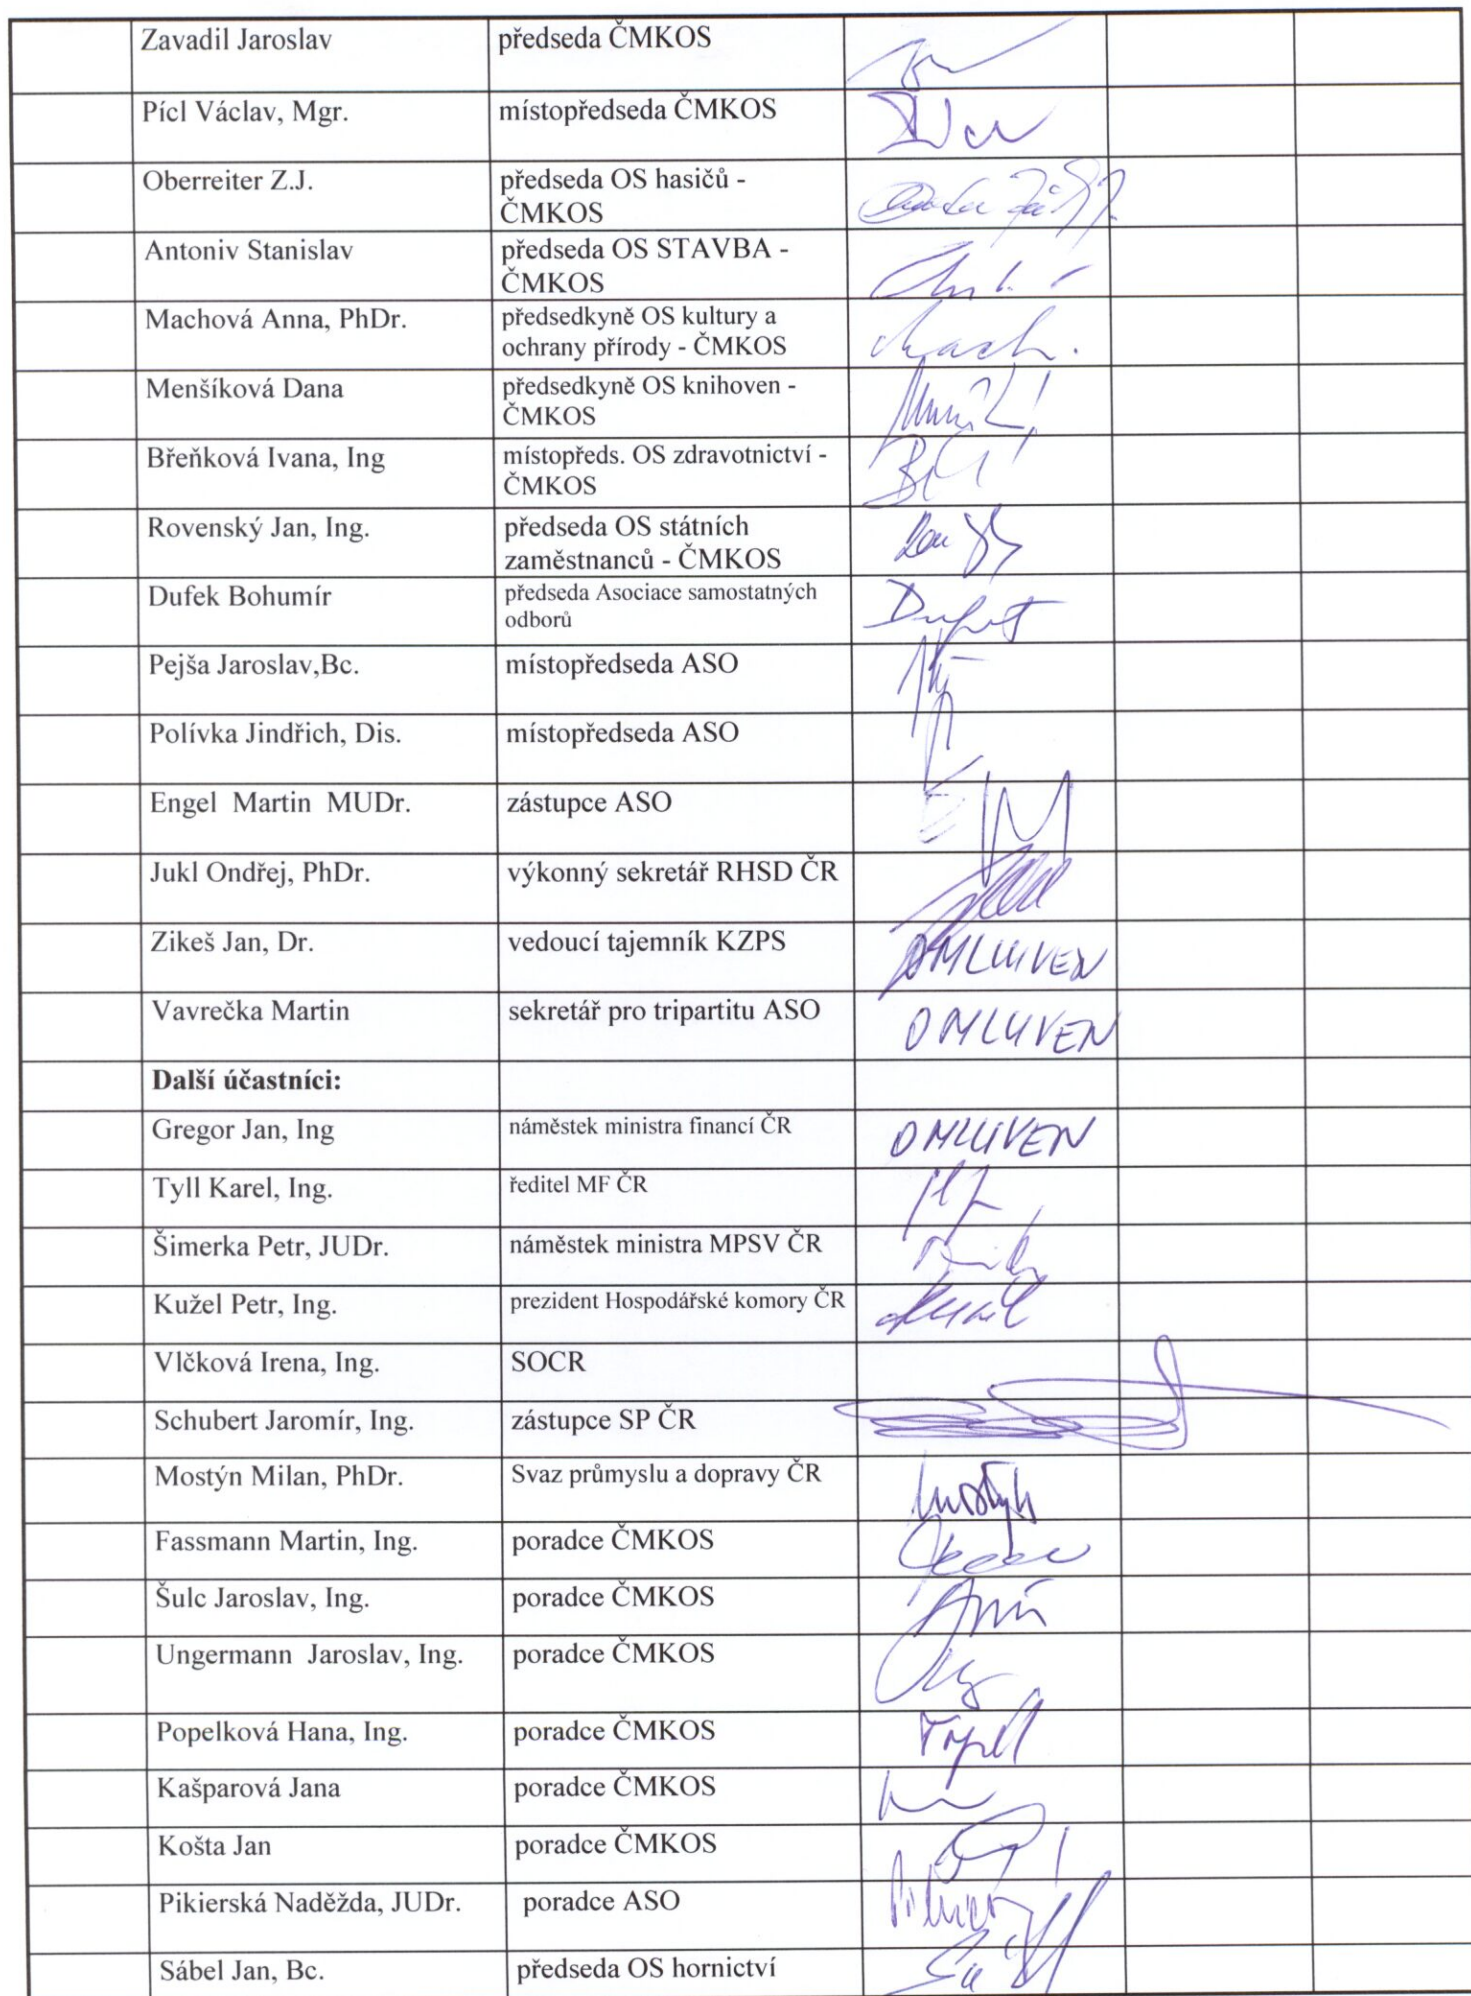 Zavadil Jaroslav předseda ČMKOS
Pícl Václav, Mgr. místopředseda ČMKOS
Oberreiter Z.J. předseda OS hasičů -
ČMKOS
Antoniv Stanislav předseda OS STAVBA -
ČMKOS
Machová Anna, PhDr. předsedkyně OS kultury a
ochrany přírody - ČMKOS
Mach.
Menšíková Dana předsedkyně OS knihoven -
ČMKOS
Břeňková Ivana, Ing místopředs. OS zdravotnictví -
ČMKOS
Rovenský Jan, Ing. předseda OS státních
zaměstnanců - ČMKOS
Dufek Bohumír předseda Asociace samostatných
odborů
Pejša Jaroslav,Bc. místopředseda ASO
Polívka Jindřich, Dis. místopředseda ASO
Engel Martin MUDr. zástupce ASO
Jukl Ondřej, PhDr. výkonný sekretář RHSD ČR
Zikeš Jan, Dr. vedoucí tajemník KZPS OMLUVEN
Vavrečka Martin sekretář pro tripartitu ASO OMLUVEN
Další účastníci:
Gregor Jan, Ing náměstek ministra financí ČR OMLUVEN
Tyll Karel, Ing. ředitel MF ČR
Šimerka Petr, JUDr. náměstek ministra MPSV ČR
Kužel Petr, Ing. prezident Hospodářské komory ČR
Vlčková Irena, Ing. SOCR
Schubert Jaromír, Ing. zástupce SP ČR
Mostýn Milan, PhDr. Svaz průmyslu a dopravy ČR
Fassmann Martin, Ing. poradce ČMKOS
Šulc Jaroslav, Ing. poradce ČMKOS
Ungermann Jaroslav, Ing. poradce ČMKOS
Popelková Hana, Ing. poradce ČMKOS
Kašparová Jana poradce ČMKOS
Košta Jan poradce ČMKOS
Pikierská Naděžda, JUDr. poradce ASO
Sábel Jan, Bc. předseda OS hornictví